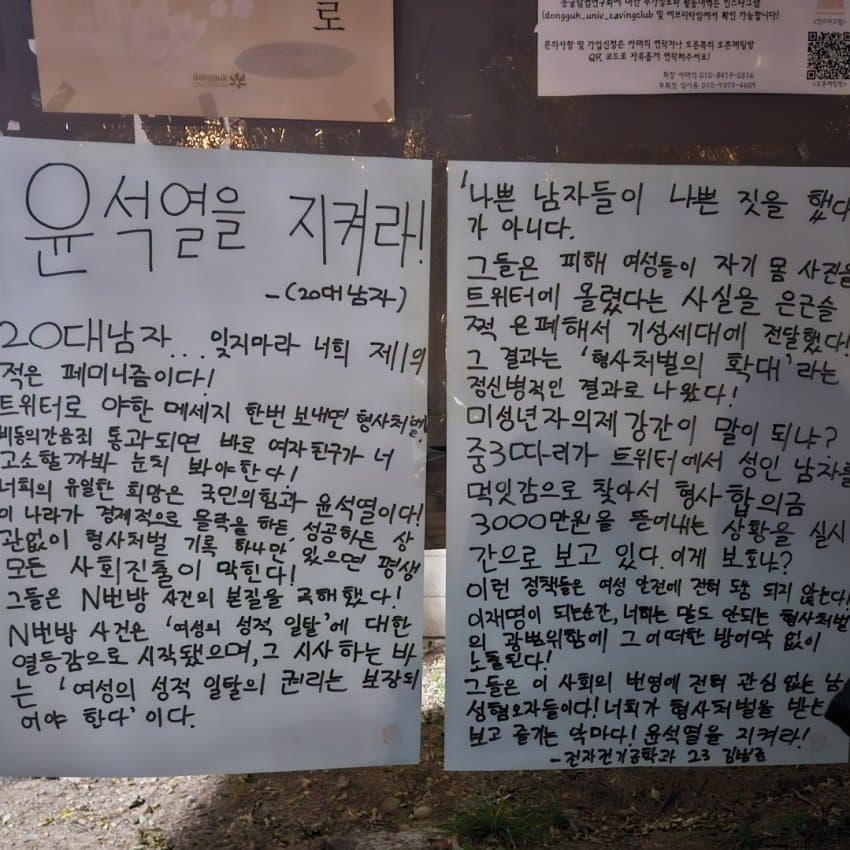 로
dongguk
(dongguk_univ_cavingclub 및 에브리타임에서 확인 가능합니다!
문의사항 및 가입신청은 아래의 연락처나 오픈톡의 오픈채팅방
QR 코드로 자유롭게 연락해주세요!
윤석열을 지켜라!
-(20대 남자)
20대남자... 잊지마라 너희 제1의
적은 페미니즘이다!
트위터로 야한 메세지 한번 보내면 형사처벌!
비동의간음죄 통과되면 바로 여자친구가 너
고소할까봐 눈치 봐야한다!
너희의 유일한 희망은 국민의힘과 윤석열이다!
이 나라가 경제적으로 몰락을 하든, 성공하든 상
관없이 형사처벌 기록 하나만 있으면 평생
모든 사회진출이 막힌다!
그들은 N번방 사건의 본질을 곡해했다!
N번방 사건은 '여성의 성적 일탈'에 대한
열등감으로 시작됐으며, 그 시사 하는 바
는 '여성의 성적 일탈의 권리는 보장되
어야 한다'이다.
'나쁜 남자들이 나쁜 짓을 했다
가 아니다.
그들은 피해 여성들이 자기 몸 사진을
트위터에 올렸다는 사실을 은근슬
쩍 은폐해서 기성세대에 전달했다!
그 결과는 '형사처벌의 확대'라는
정신병적인 결과로 나왔다!
미성년자의제강간이 말이 되냐?
중3따리가 트위터에서 성인 남자를
먹잇감으로 찾아서 형사 합의금
3000만원을 뜯어내는 상황을 실시
간으로 보고 있다. 이게 보호냐?
이런 정책들은 여성 안전에 전혀 도움 되지 않는다!
이재명이 되는순간, 너희는 말도 안되는 형사처벌
의 광범위함에 그 어떠한 방어막 없이
노출된다!
그들은 이 사회의 번영에 전혀 관심 없는 남
성혐오자들이다! 너희가 형사처벌을 받는
보고 즐기는 악마다! 윤석열을 지켜라!
-전자전기공학과 23